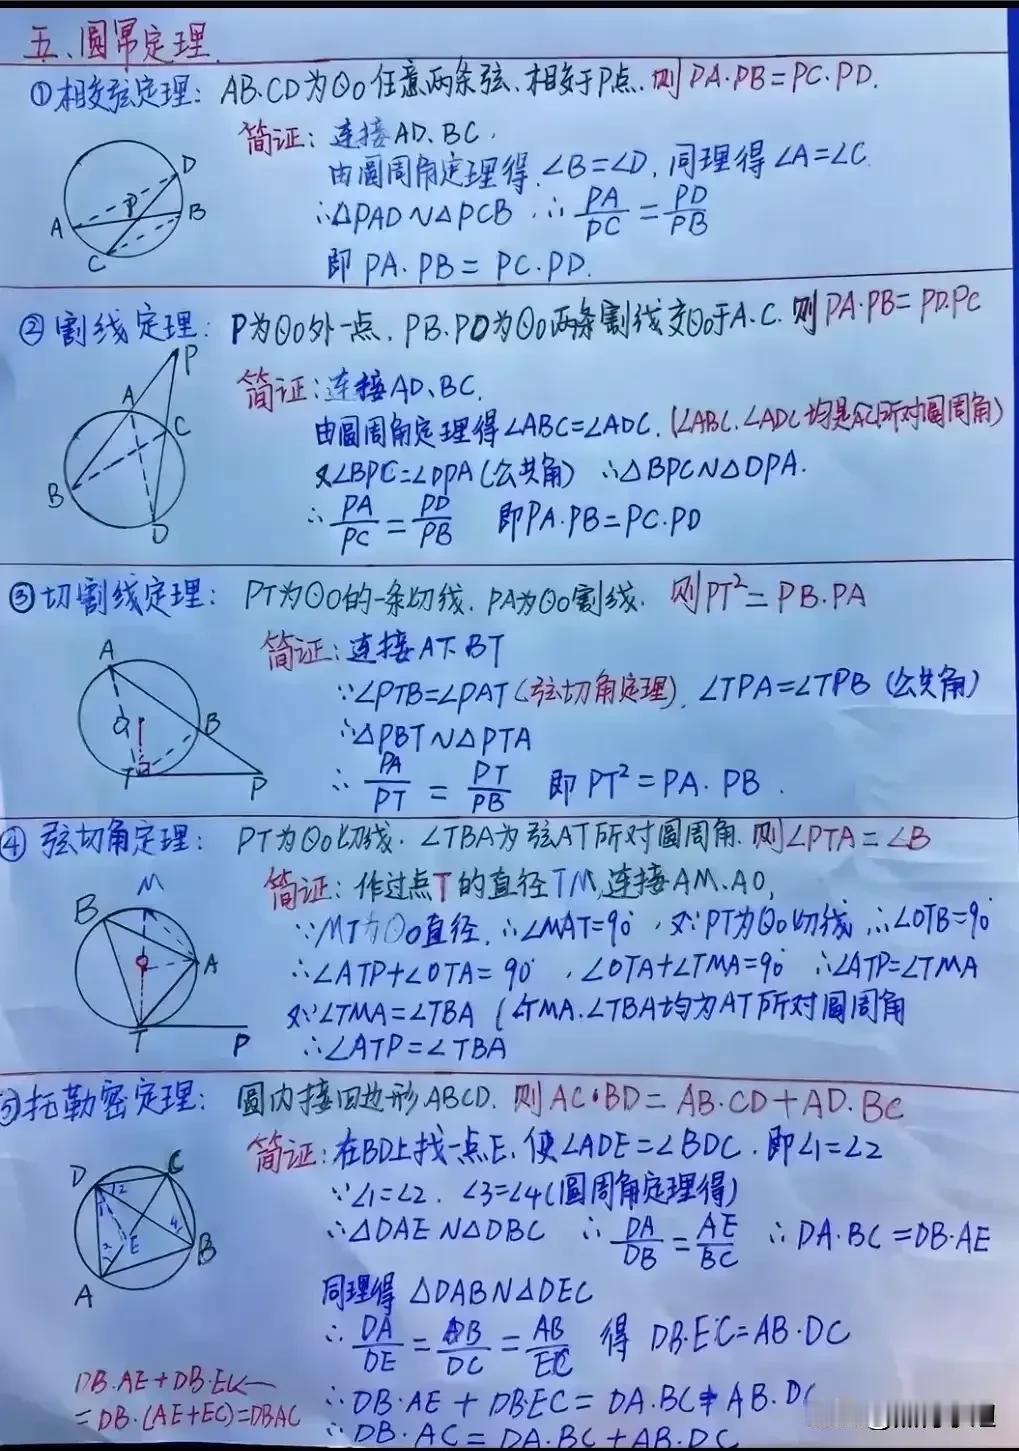 五、圆幂定理.
①相交弦定理: AB.CD为⊙O任意两条弦、相交于P点. 则PA·PB=PC·PD.
简证: 连接AD、BC.
由圆周角定理得.∠B=∠D, 同理得∠A=∠C.
∴△PAD∽△PCB ∴ PA/PC = PD/PB
即 PA·PB = PC·PD.
D
P
B
A
C
②割线定理: P为⊙O外一点. PB.PD为⊙O两条割线交⊙O于A.C. 则PA·PB=PD.PC
简证:连接AD、BC.
由圆周角定理得∠ABC=∠ADC. (∠ABC.∠ADC均是AC所对圆周角)
又∠BPC=∠DPA(公共角) ∴△BPC∽△DPA.
∴ PA/PC = PD/PB 即PA·PB=PC·PD
P
A
C
B
D
③切割线定理: PT为⊙O的一条切线. PA为⊙O割线. 则PT²=PB.PA
简证:连接AT、BT
∵∠PTB=∠PAT(弦切角定理). ∠TPA=∠TPB (公共角)
∴△PBT∽△PTA
∴ PA/PT = PT/PB 即 PT²=PA·PB.
A
O
B
T
P
④弦切角定理: PT为⊙O切线. ∠TBA为弦AT所对圆周角. 则∠PTA=∠B
简证: 作过点T的直径TM,连接AM.AO,
∵MT为⊙O直径. ∴∠MAT=90°, 又∵PT为⊙O切线 ∴∠OTB=90°
∴∠ATP+∠OTA=90°, ∠OTA+∠TMA=90° ∴∠ATP=∠TMA
又∵∠TMA=∠TBA (∠TMA.∠TBA均为AT所对圆周角
∴∠ATP=∠TBA
M
B
A
T
P
⑤托勒密定理: 圆内接四边形ABCD. 则AC·BD=AB.CD+AD.BC
简证:在BD上找一点E,使∠ADE=∠BDC.即∠1=∠2
∵∠1=∠2. ∠3=∠4(圆周角定理得)
∴△DAE∽△DBC ∴ DA/DB = AE/BC ∴DA.BC=DB·AE
同理得 △DAB∽△DEC
∴ DA/DE = DB/DC = AB/EC 得 DB·EC=AB·DC
∴DB·AE + DB·EC = DA.BC+AB.DC
∴DB·AC = DA.BC+AB.DC
D
C
1
2
3
4
E
B
A
DB.AE+DB.EC
=DB.(AE+EC)=DB·AC